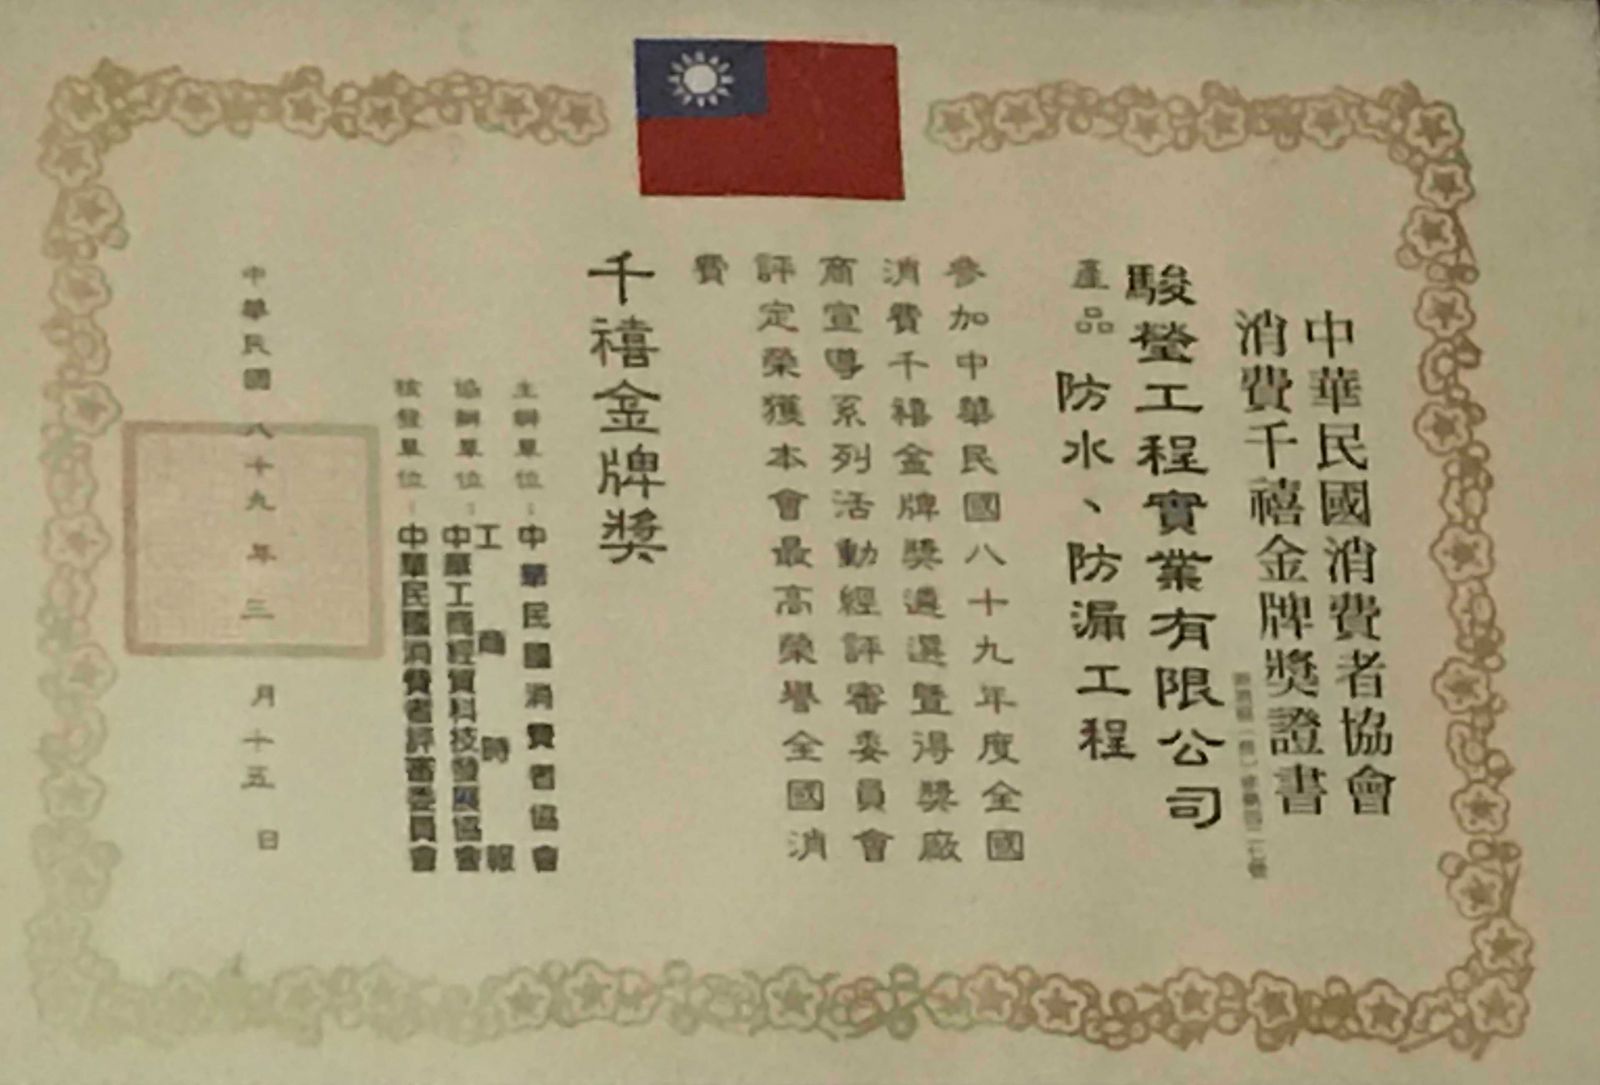 中華民國消費者協會
消費千禧金牌獎證書
駿瑩工程實業有限公司
產品 防水、防漏工程
參加中華民國八十九年度全國
消費千禧金牌獎遴選暨得獎廠
商宣導系列活動經評審委員會
評定榮獲本會最高榮譽全國消
費
千禧金牌獎
主辦單位：中華民國消費者協會
工商時報
協辦單位：中華工商經貿科技發展協會
核發單位：中華民國消費者評審委員會
中華民國八十九年三月十五日